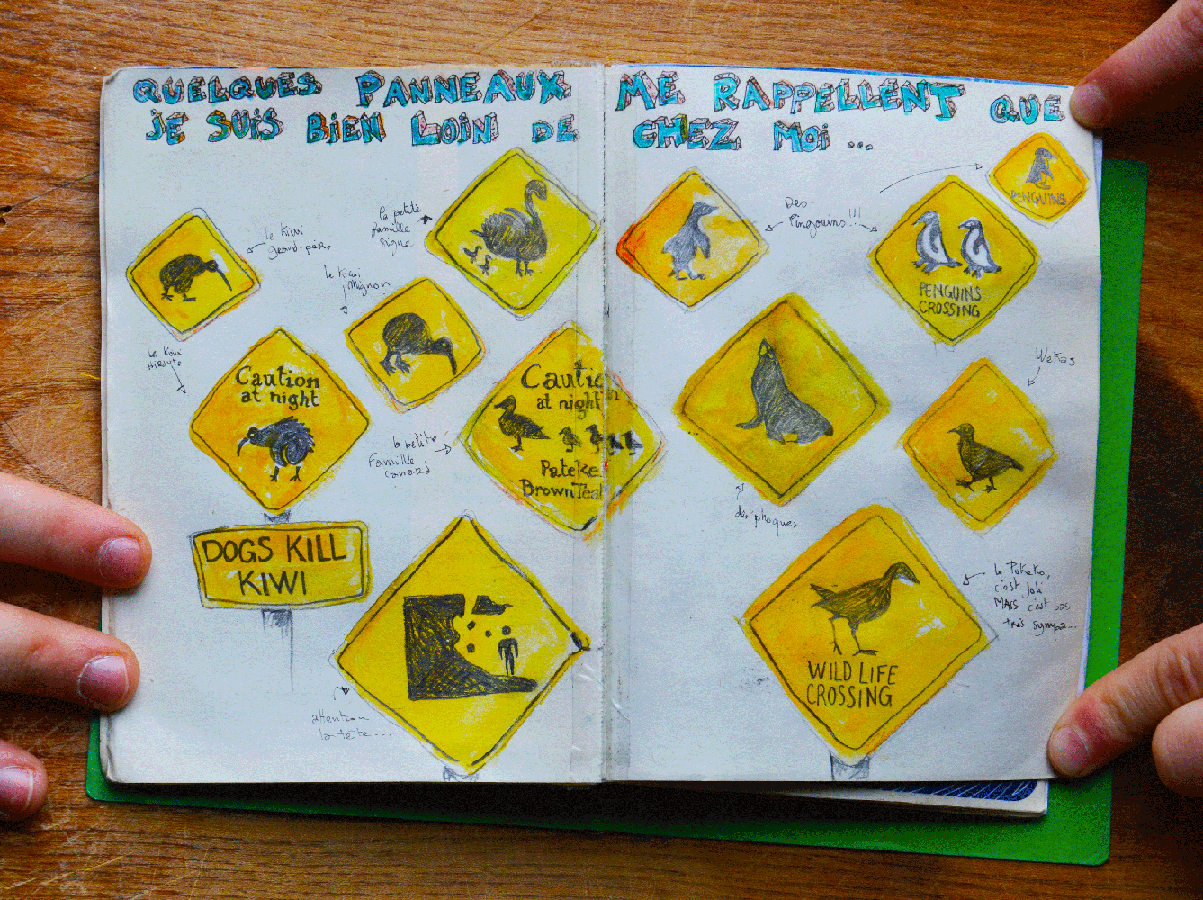 QUELQUES PANNEAUX ME RAPPELLENT QUE
JE SUIS BIEN LOIN DE CHEZ MOI ...
le Kiwi
grand-père
la petite
famille
le Kiwi
mignon
le Kiwi
Caution
at night
DOGS KILL
KIWI
la petite
famille
canard
Caution
at night
Pateke
Brown Teal
attention
la tête...
Des
Pingouins!!!
PENGUINS
PENGUINS
CROSSING
des phoques
Wekas
le Pukeko,
c'est joli
MAIS c'est pas
très sympa...
WILD LIFE
CROSSING